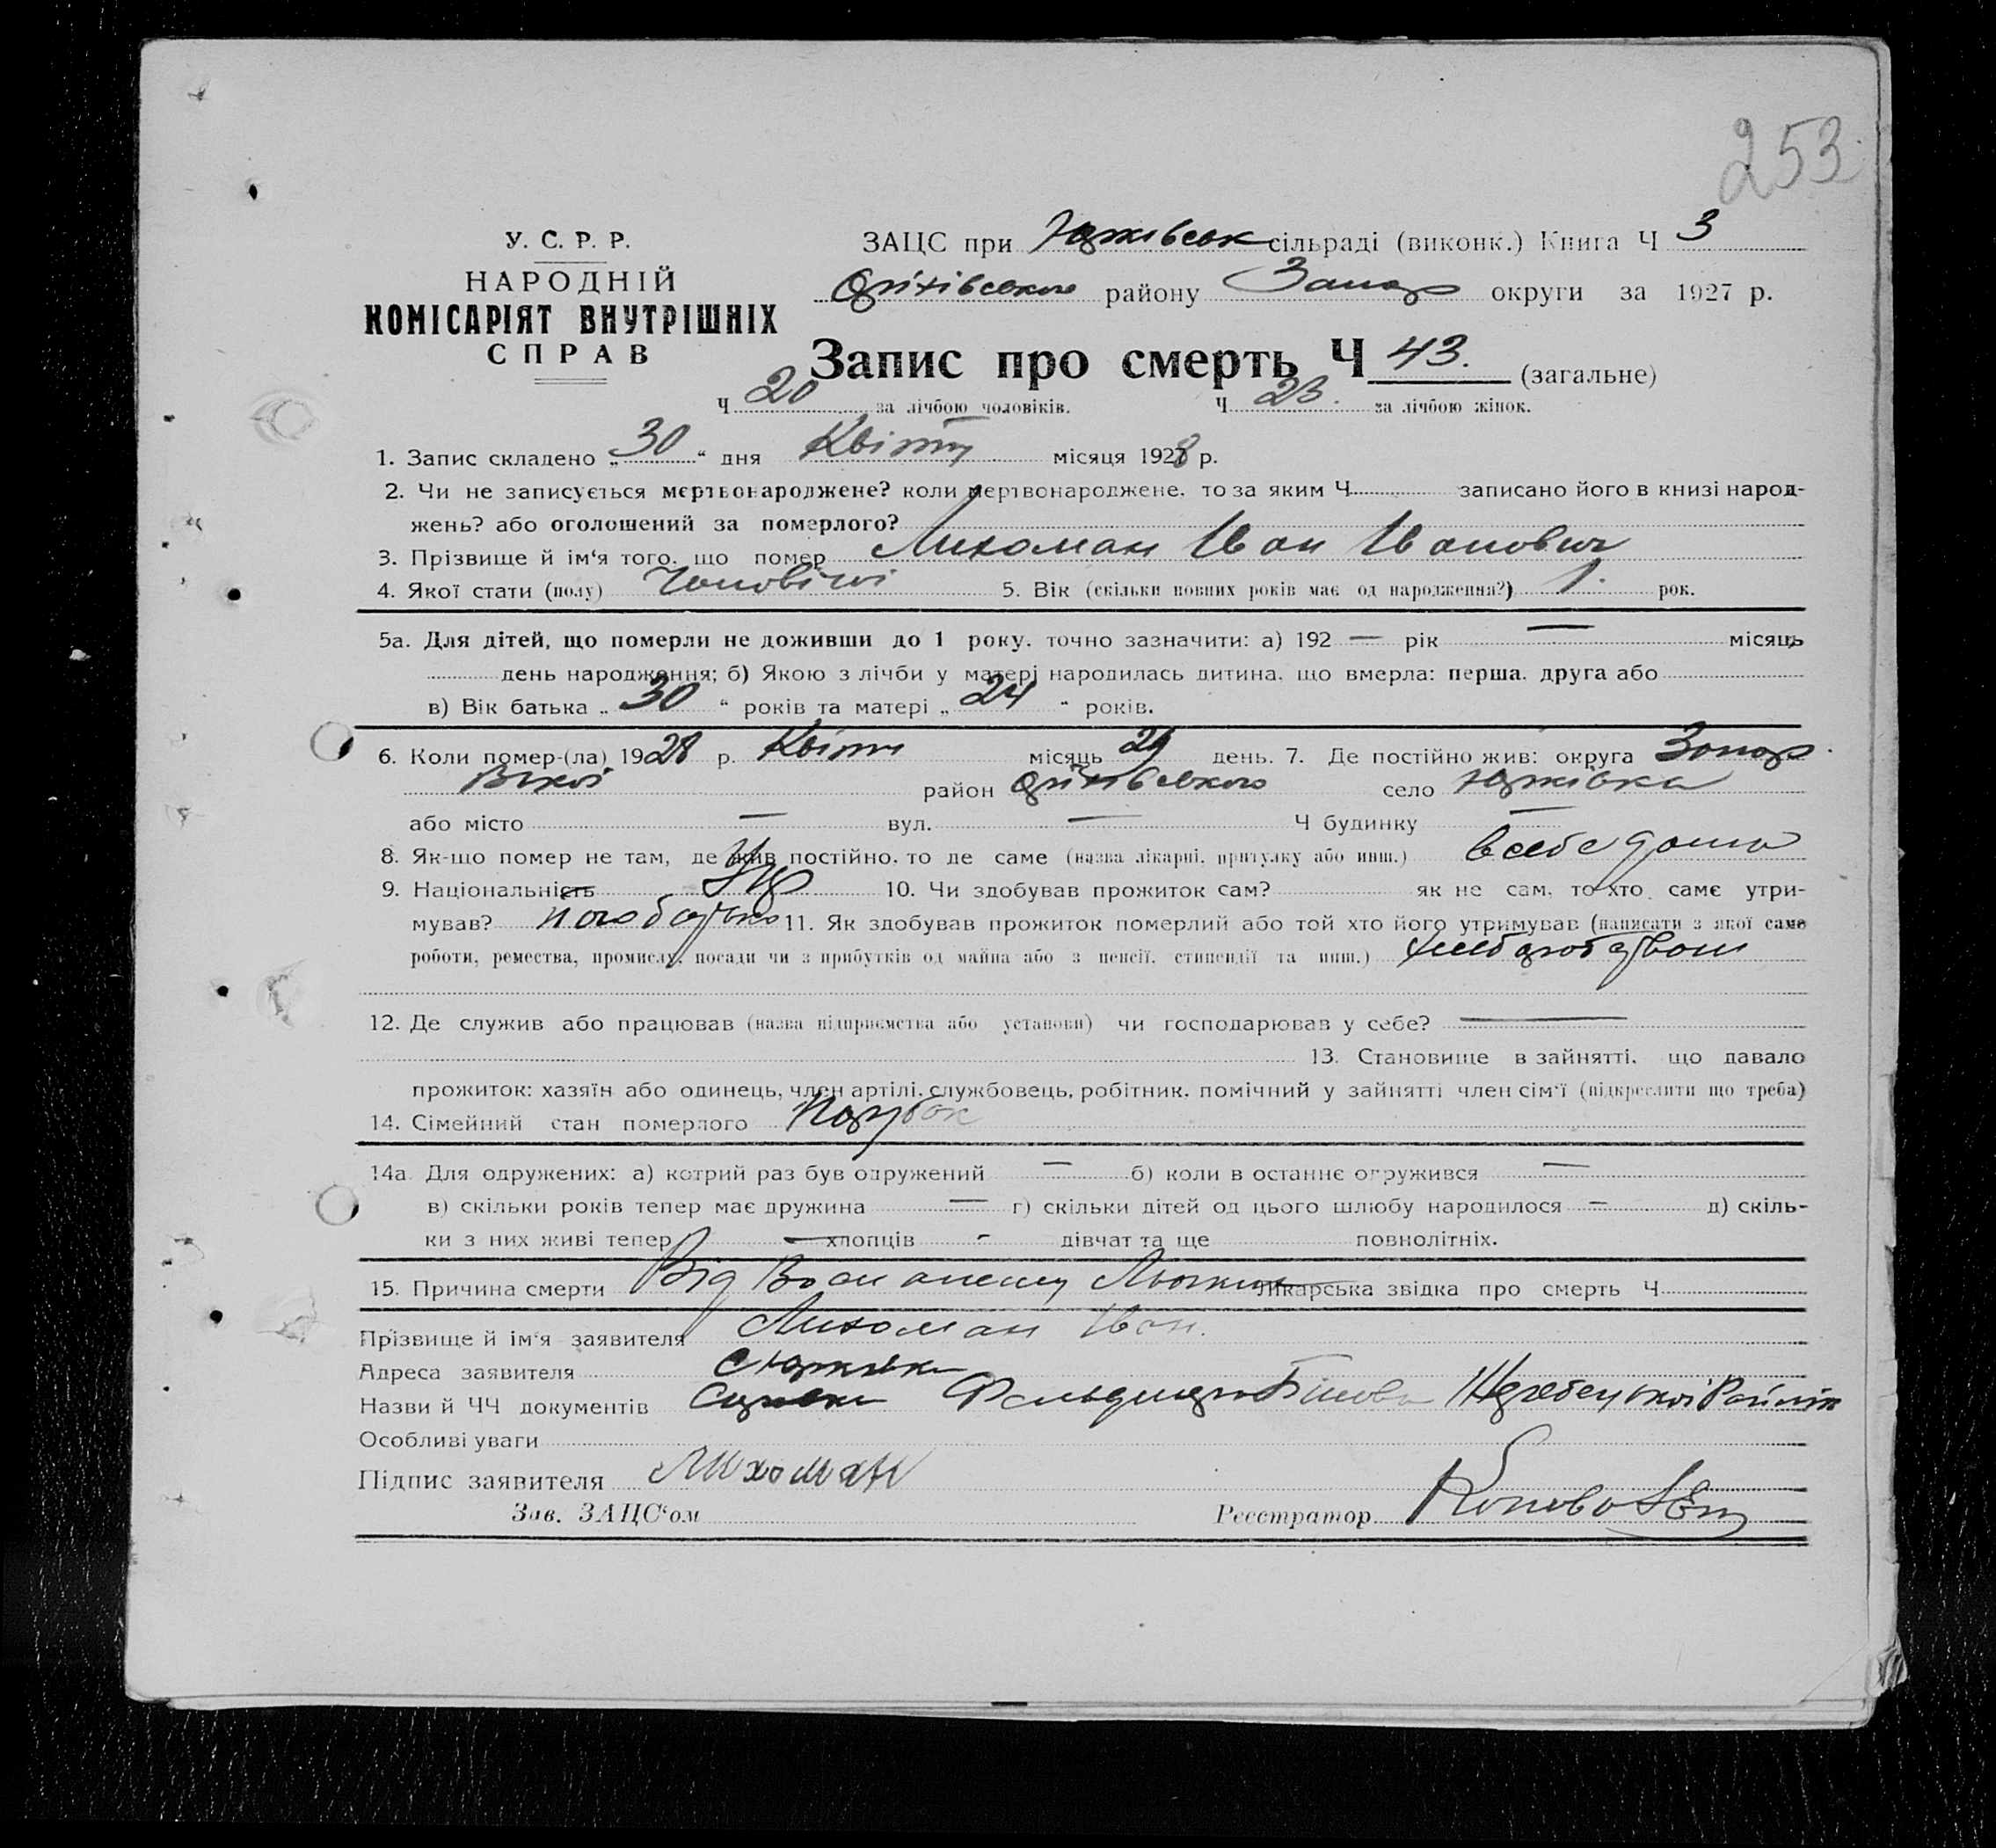 253
У. С. Р. Р.
НАРОДНІЙ
КОМІСАРІЯТ ВНУТРІШНІХ
СПРАВ
ЗАЦС при Юрківськ сільраді (виконк.) Книга Ч 3
Оріхівського району Запор округи за 1927 р.
Запис про смерть Ч 43. (загальне)
Ч 20 за лічбою чоловіків. Ч 23. за лічбою жінок.
1. Запис складено „30“ дня Квітн місяця 1928 р.
2. Чи не записується мертвонароджене? коли мертвонароджене, то за яким Ч записано його в книзі народ-
жень? або оголошений за померлого?
3. Прізвище й ім‘я того, що помер Лихоман Іван Іванович
4. Якої стати (полу) Чоловічої 5. Вік (скільки повних років має од народження?) 1. рок.
5а. Для дітей, що померли не доживши до 1 року, точно зазначити: а) 192 — рік — місяць
день народження; б) Якою з лічби у матері народилась дитина, що вмерла: перша, друга або
в) Вік батька „30“ років та матері „24“ років.
6. Коли помер-(ла) 1928 р. Квітн місяць 29 день. 7. Де постійно жив: округа Запор
район Оріхівського село Юрківка
або місто — вул. — Ч будинку —
8. Як-що помер не там, де жив постійно, то де саме (назва лікарні, притулку або инш.) в себе дома
9. Національність Укр 10. Чи здобував прожиток сам? як не сам, то хто саме утри-
мував? його батько 11. Як здобував прожиток померлий або той хто його утримував (написати з якої саме
роботи, ремества, промислу, посади чи з прибутків од майна або з пенсії, стипендії та инш.) хліборобством
12. Де служив або працював (назва підприємства або установи) чи господарював у себе? —
13. Становище в зайнятті, що давало
прожиток: хазяїн або одинець, член артілі, службовець, робітник, помічний у зайнятті член сім‘ї (підкреслити що треба)
14. Сімейний стан померлого Парубок
14а. Для одружених: а) котрий раз був одружений — б) коли в останнє одружився —
в) скільки років тепер має дружина — г) скільки дітей од цього шлюбу народилося — д) скіль-
ки з них живі тепер — хлопців - дівчат та ще повнолітніх.
15. Причина смерти Від Воспалению Льогких лікарська звідка про смерть Ч
Прізвище й ім‘я заявителя Лихоман Іван.
Адреса заявителя с Юрківка
Назви й ЧЧ документів
Особливі уваги
Підпис заявителя Лихоман
Зав. ЗАЦС‘ом Реєстратор